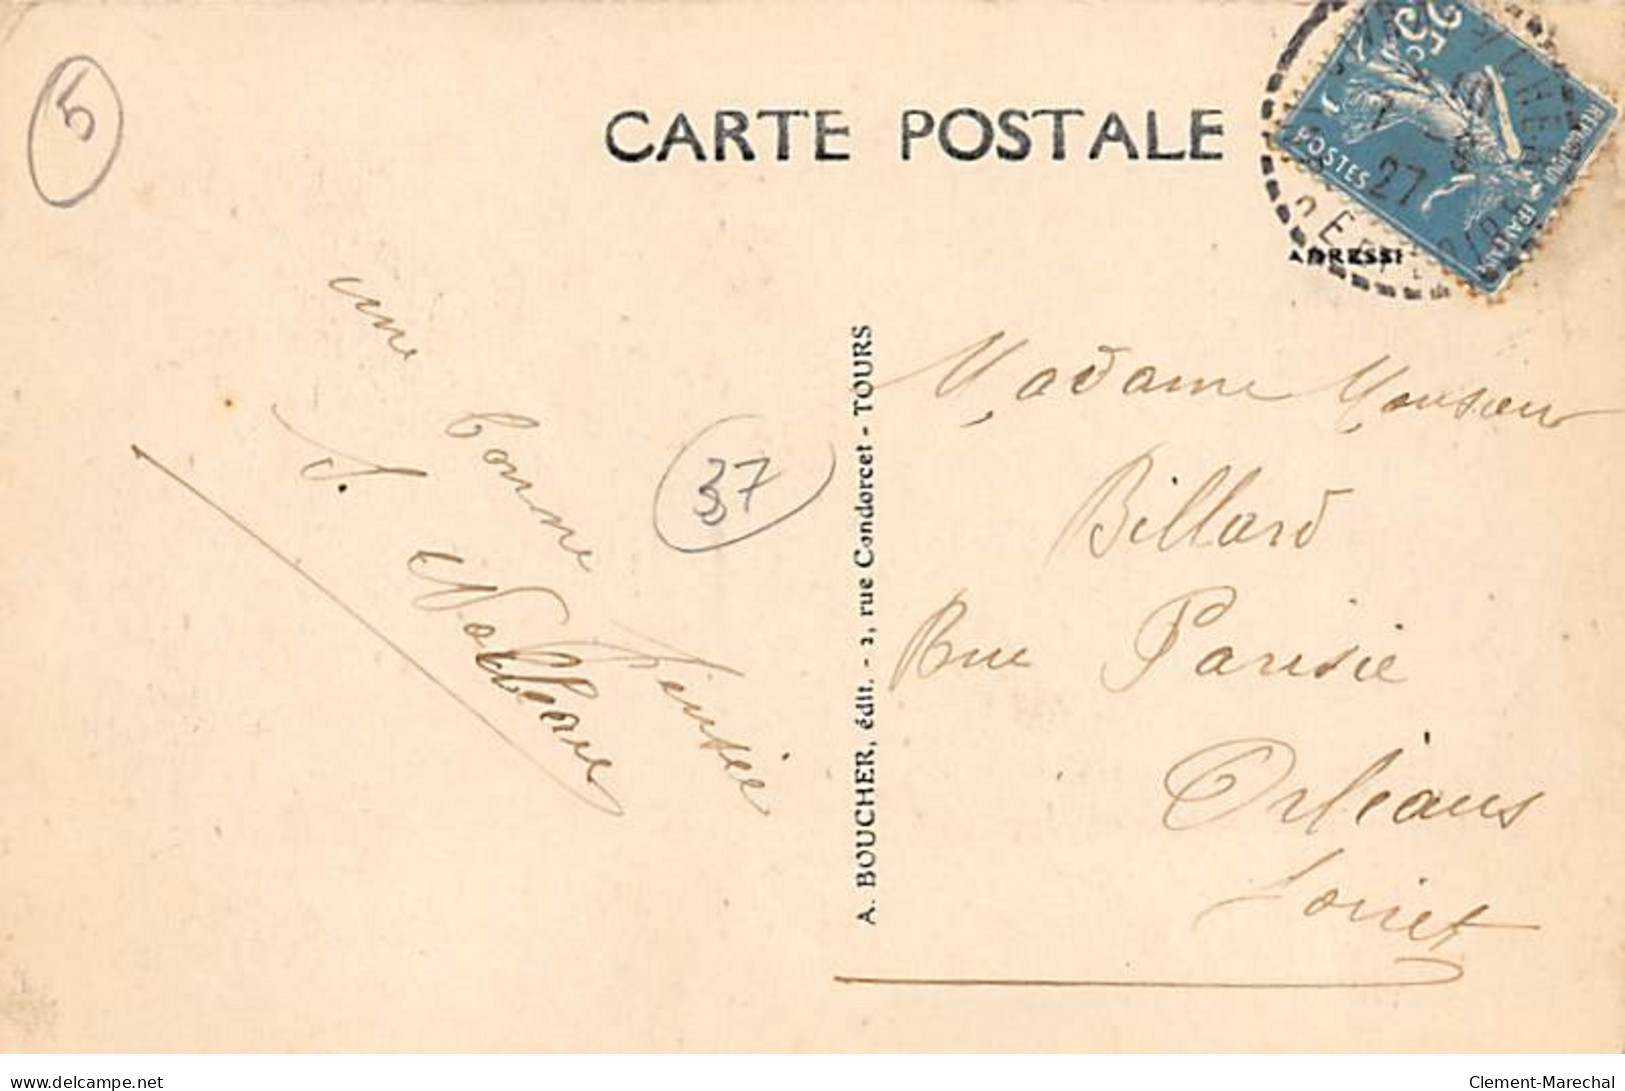 5
CARTE POSTALE
25c
POSTES
27
ADRESSE
une
bonne
Pensée
37
A. BOUCHER, édit. - 2, rue Condorcet - TOURS
Madame Monsieur
Billard
Rue Parisie
Orléans
Loiret
www.delcampe.net
Clement-Marechal